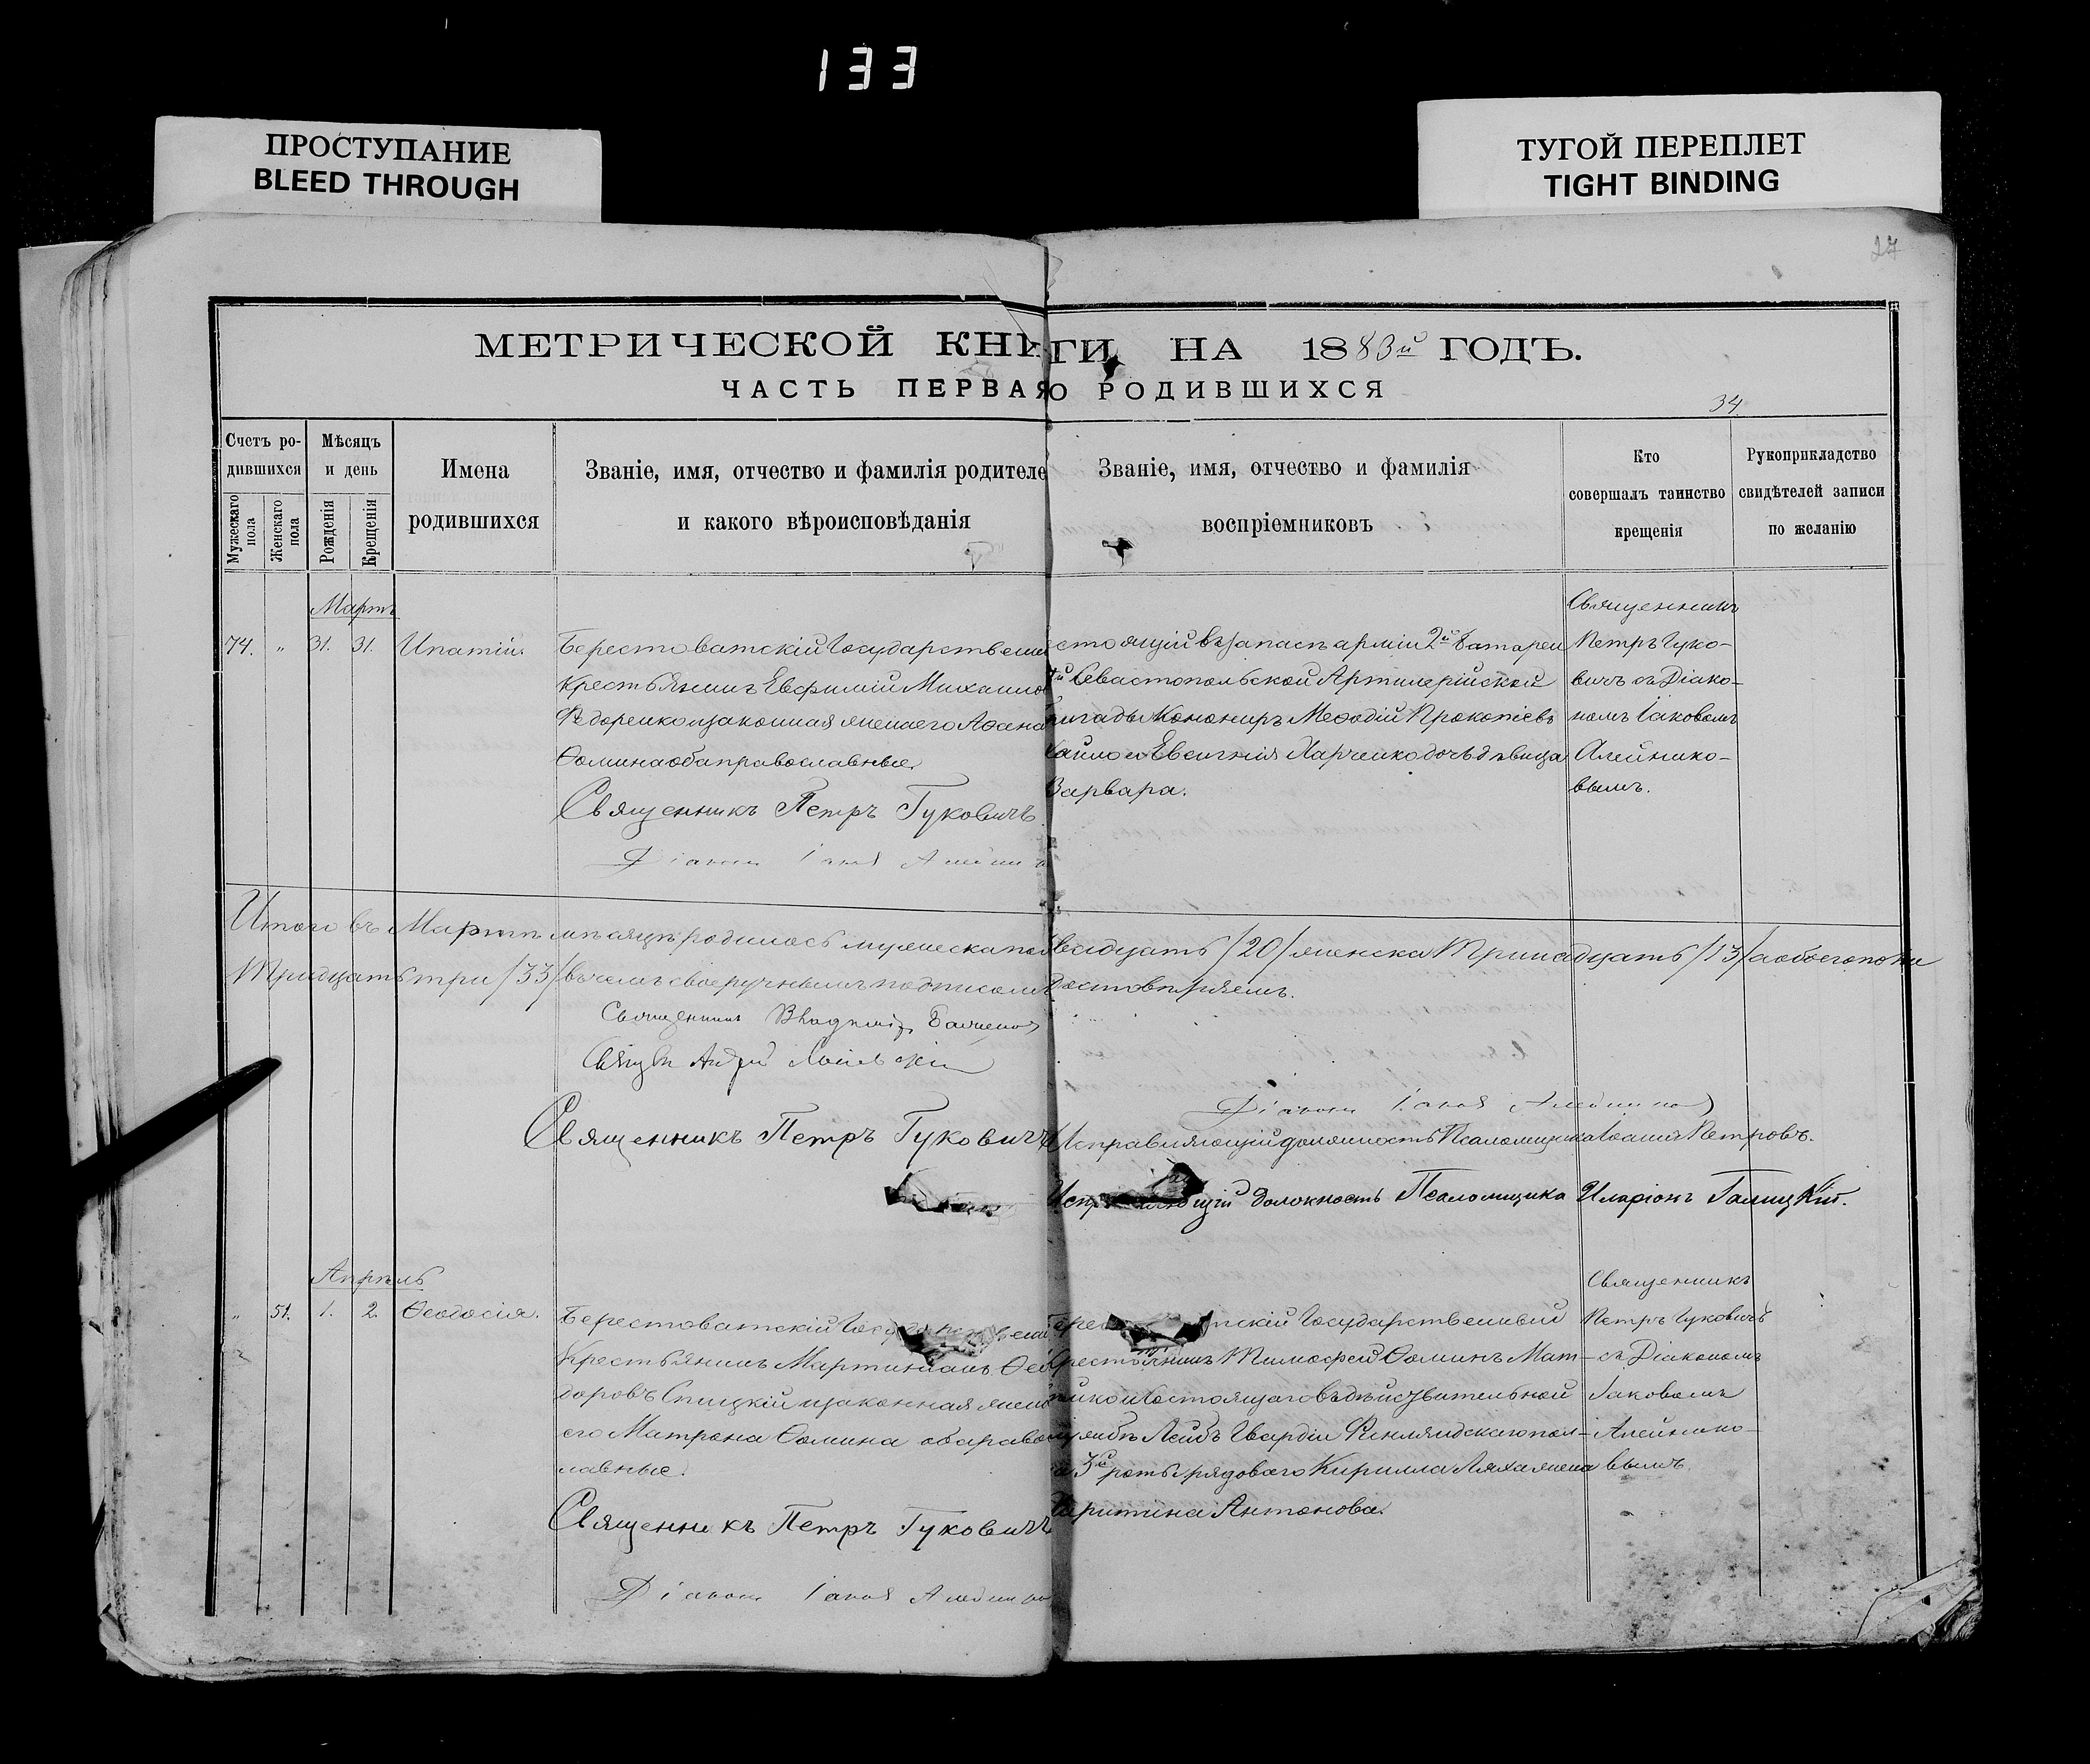 133
ПРОСТУПАНИЕ
BLEED THROUGH
ТУГОЙ ПЕРЕПЛЕТ
TIGHT BINDING
27
МЕТРИЧЕСКОЙ КНИГИ НА 1883й ГОДЪ.
ЧАСТЬ ПЕРВАЯ О РОДИВШИХСЯ
34
Счетъ ро-
дившихся
Мужескаго пола
Женскаго пола
Мѣсяцъ
и день
Рожденія
Крещенія
Имена
родившихся
Званіе, имя, отчество и фамилія родителе
и какого вѣроисповѣданія
Званіе, имя, отчество и фамилія
воспріемниковъ
Кто
совершалъ таинство
крещенія
Рукоприкладство
свидѣтелей записи
по желанію
Мартъ
74. " 31. 31. Ипатій.
Берестоватскій Государствен
Крестьянинъ Евфимій Михаило
Ѳедоренко и законная жена его Аѳана
Ѳомина оба православные.
Священникъ Петръ Гуковичъ
Діаконъ Іаков Алейник
стоящій въ запасѣ арміи 2й батареи
й Севастопольской Артилерійской
ригады Кононир Меѳодій Прокопіевъ
и Евгенія Харченко дочь дѣвица
Варвара.
Священникъ
Петръ Гуко-
вичъ съ Діако-
номъ Іаковомъ
Алейнико-
вымъ.
Итого въ Мартѣ мѣсяцѣ родилось мужеска пол двадцать /20/ женска тринадцать /13/ а обоего пола
тридцать три /33/ въ чемъ своеручнымъ подписомъ удостовѣряемъ.
Священникъ Владиміръ
Священ Андрей
Священникъ Петръ Гуковичъ
Діаконъ Іаков Алейников
Исправляющій должность Псаломщика Іоаннъ Петровъ.
Испр ляющій должность Псаломщика Иларіонъ Галицкій.
Апрѣль
" 51. 1. 2. Ѳеодосія.
Берестоватскій Государствен
Крестьянинъ Мартиніанъ Ѳео
доровъ Спицкій и законная жена
его Матрона Ѳомина оба право
лавные.
Священникъ Петръ Гуковичъ
Діаконъ Іаков Алейник
Бере тскій Государственный
Крестьянинъ Тимофей Ѳоминъ Мат-
и состоящаго въ дѣйствительной
службѣ Лейбъ Гвардіи Финляндскаго пол-
а 3й роты рядоваго Кирилла Ляха жена
Харитина Антонова.
Священникъ
Петръ Гуковичъ
съ Діакономъ
Іаковомъ
Алейнико-
вымъ.